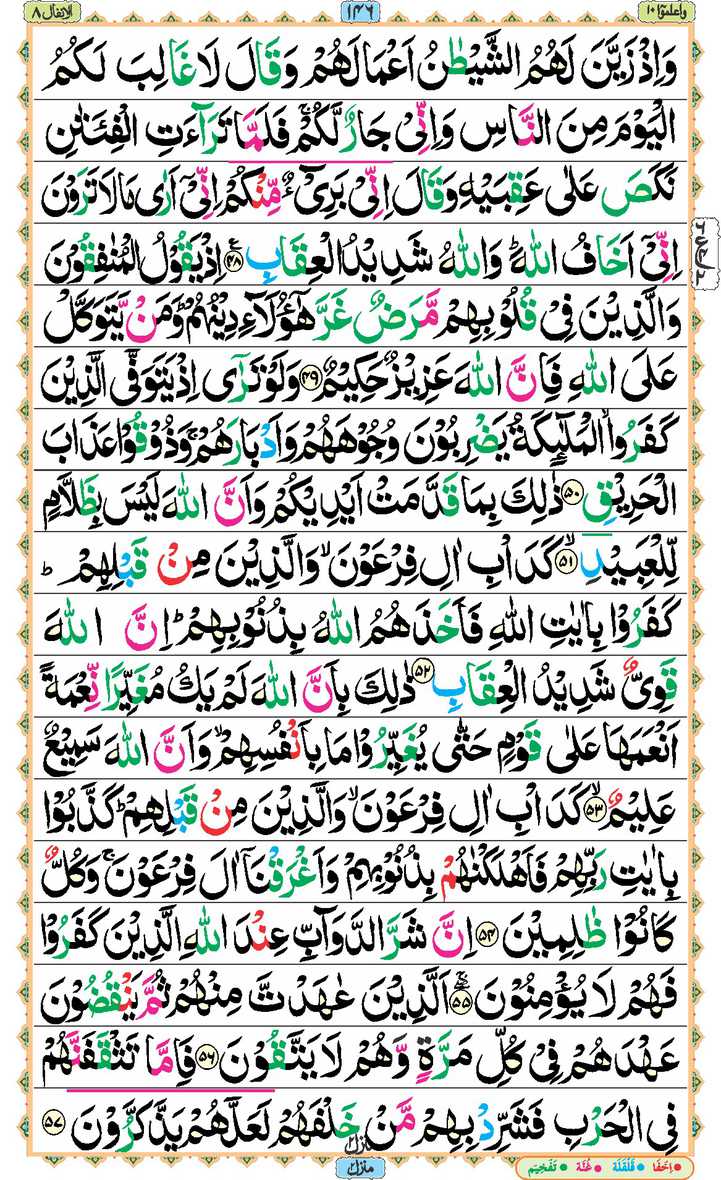 واعلموٓا ١٠
١٤٦
الانفال ٨
وَاِذْ زَيَّنَ لَهُمُ الشَّيْطٰنُ اَعْمَالَهُمْ وَقَالَ لَا غَالِبَ لَكُمُ
الْيَوْمَ مِنَ النَّاسِ وَاِنِّىْ جَارٌ لَّكُمْ ۚ فَلَمَّا تَرَآءَتِ الْفِئَتٰنِ
نَكَصَ عَلٰى عَقِبَيْهِ وَقَالَ اِنِّىْ بَرِىْٓءٌ مِّنْكُمْ اِنِّىْٓ اَرٰى مَا لَا تَرَوْنَ
اِنِّىْٓ اَخَافُ اللّٰهَ ؕ وَاللّٰهُ شَدِيْدُ الْعِقَابِ ﴿۴۸﴾ اِذْ يَقُوْلُ الْمُنٰفِقُوْنَ
وَالَّذِيْنَ فِىْ قُلُوْبِهِمْ مَّرَضٌ غَرَّ هٰٓؤُلَآءِ دِيْنُهُمْ ؕ وَمَنْ يَّتَوَكَّلْ
عَلَى اللّٰهِ فَاِنَّ اللّٰهَ عَزِيْزٌ حَكِيْمٌ ﴿۴۹﴾ وَلَوْ تَرٰٓى اِذْ يَتَوَفَّى الَّذِيْنَ
كَفَرُوا ۙ الْمَلٰٓئِكَةُ يَضْرِبُوْنَ وُجُوْهَهُمْ وَاَدْبَارَهُمْ ۚ وَذُوْقُوْا عَذَابَ
الْحَرِيْقِ ﴿۵۰﴾ ذٰلِكَ بِمَا قَدَّمَتْ اَيْدِيْكُمْ وَاَنَّ اللّٰهَ لَيْسَ بِظَلَّامٍ
لِّلْعَبِيْدِ ۙ﴿۵۱﴾ كَدَاْبِ اٰلِ فِرْعَوْنَ ۙ وَالَّذِيْنَ مِنْ قَبْلِهِمْ ؕ
كَفَرُوْا بِاٰيٰتِ اللّٰهِ فَاَخَذَهُمُ اللّٰهُ بِذُنُوْبِهِمْ ؕ اِنَّ اللّٰهَ
قَوِىٌّ شَدِيْدُ الْعِقَابِ ﴿۵۲﴾ ذٰلِكَ بِاَنَّ اللّٰهَ لَمْ يَكُ مُغَيِّرًا نِّعْمَةً
اَنْعَمَهَا عَلٰى قَوْمٍ حَتّٰى يُغَيِّرُوْا مَا بِاَنْفُسِهِمْ ۙ وَاَنَّ اللّٰهَ سَمِيْعٌ
عَلِيْمٌ ۙ﴿۵۳﴾ كَدَاْبِ اٰلِ فِرْعَوْنَ ۙ وَالَّذِيْنَ مِنْ قَبْلِهِمْ ؕ كَذَّبُوْا
بِاٰيٰتِ رَبِّهِمْ فَاَهْلَكْنٰهُمْ بِذُنُوْبِهِمْ وَاَغْرَقْنَآ اٰلَ فِرْعَوْنَ ۚ وَكُلٌّ
كَانُوْا ظٰلِمِيْنَ ﴿۵۴﴾ اِنَّ شَرَّ الدَّوَآبِّ عِنْدَ اللّٰهِ الَّذِيْنَ كَفَرُوْا
فَهُمْ لَا يُؤْمِنُوْنَ ۖۚ﴿۵۵﴾ اَلَّذِيْنَ عٰهَدْتَّ مِنْهُمْ ثُمَّ يَنْقُضُوْنَ
عَهْدَهُمْ فِىْ كُلِّ مَرَّةٍ وَّهُمْ لَا يَتَّقُوْنَ ﴿۵۶﴾ فَاِمَّا تَثْقَفَنَّهُمْ
فِى الْحَرْبِ فَشَرِّدْ بِهِمْ مَّنْ خَلْفَهُمْ لَعَلَّهُمْ يَذَّكَّرُوْنَ ﴿۵۷﴾
منزل ٢
منزل ٢
• اِخْفَا • قَلْقَلَة • غُنَّة • تَفْخِيْم